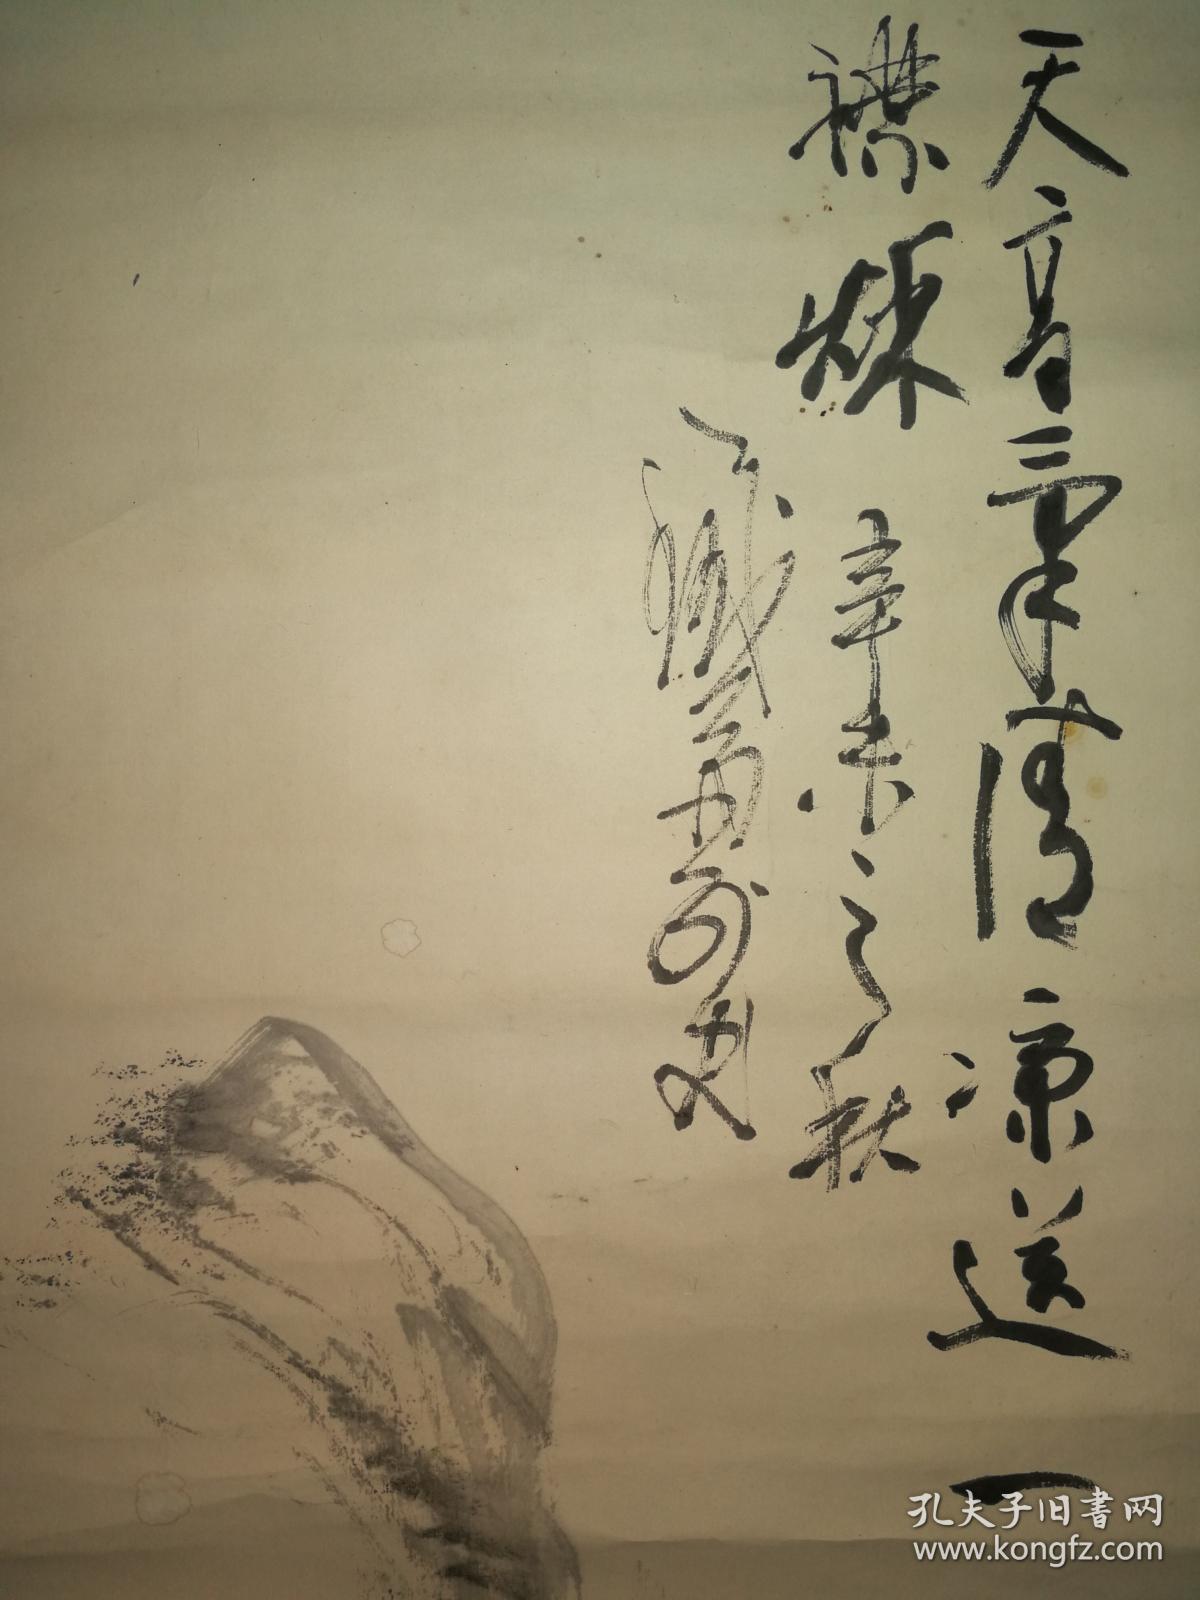 天高氣清凉送一
襟秋 辛未之秋
孔夫子旧書网
www.kongfz.com